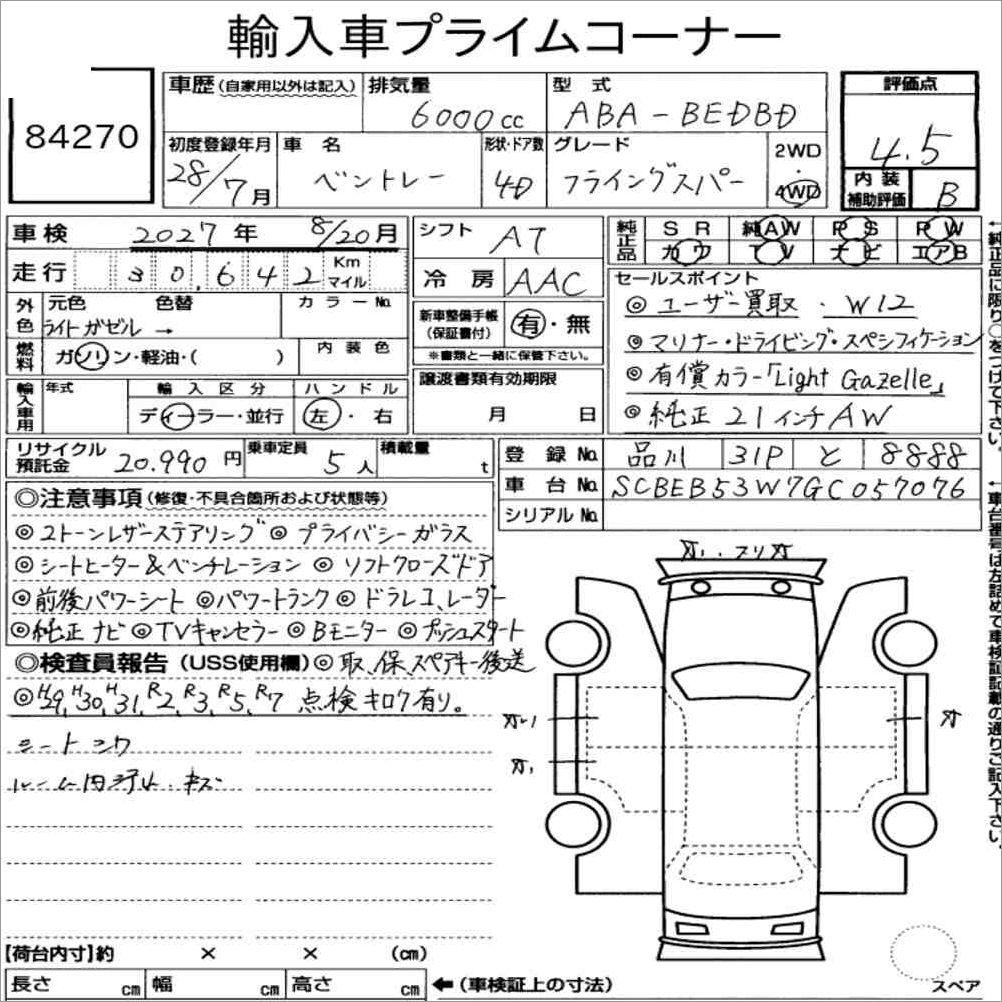 輸入車プライムコーナー
84270
車歴(自家用以外は記入)
排気量 6000cc
型式 ABA-BEDBD
評価点 4.5
初度登録年月 28/7月
車名 ベントレー
形状・ドア数 4D
グレード フライングスパー
2WD・4WD
内装補助評価 B
車検 2027年 8/20月
シフト AT
純正品 SR 純AW PS PW
カワ TV ナビ エアB
走行 30,642 Km マイル
冷房 AAC
セールスポイント
◎ユーザー買取・W12
◎マリナー・ドライビング・スペシフィケーション
◎有償カラー「Light Gazelle」
◎純正21インチAW
外色 元色 色替 カラーNo.
ライトガゼル →
新車整備手帳(保証書付) 有・無
※書類と一緒に保管下さい。
燃料 ガソリン・軽油・( )
内装色
輸入車用 年式 輸入区分 ハンドル
ディーラー・並行 左・右
譲渡書類有効期限
月 日
リサイクル預託金 20.990円
乗車定員 5人
積載量 t
登録No. 品川 31P と 8888
車台No. SCBEB53W7GC057076
シリアルNo.
◎注意事項(修復・不具合箇所および状態等)
◎2トーンレザーステアリング ◎プライバシーガラス
◎シートヒーター&ベンチレーション ◎ソフトクローズドア
◎前後パワーシート ◎パワートランク ◎ドラレコ、レーダー
◎純正ナビ ◎TVキャンセラー ◎Bモニター ◎プッシュスタート
◎検査員報告(USS使用欄) ◎取、保、スペアキー後送
◎H29、H30、H31、R2、R3、R5、R7 点検キロク有り。
シートシワ
ルーム内汚れ・キズ
【荷台内寸】約 × × (cm)
長さ cm 幅 cm 高さ cm ←(車検証上の寸法)
スペア
↑純正品に限り○をつけて下さい。
↑車台番号は左詰めで車検証記載の通りご記入下さい。